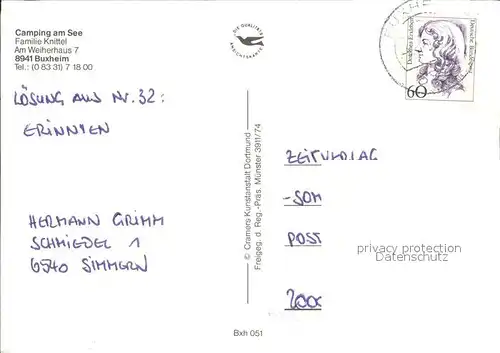 Camping am See
Familie Knittel
Am Weiherhaus 7
8941 Buxheim
Tel.: (0 83 31) 7 18 00
DIE QUALITÄTS
ANSICHTSKARTE
BUXHE
Dorothea Erxleben
Deutsche Bundespost
60
LÖSUNG AUS NR. 32:
ERINNYEN
HERMANN GRIMM
SCHMIEDEL 1
6540 SIMMERN
© Cramers Kunstanstalt Dortmund
Freigeg. d. Reg.-Präs. Münster 3911/74
ZEITVERLAG
POST
2000
privacy protection
Datenschutz
Bxh 051